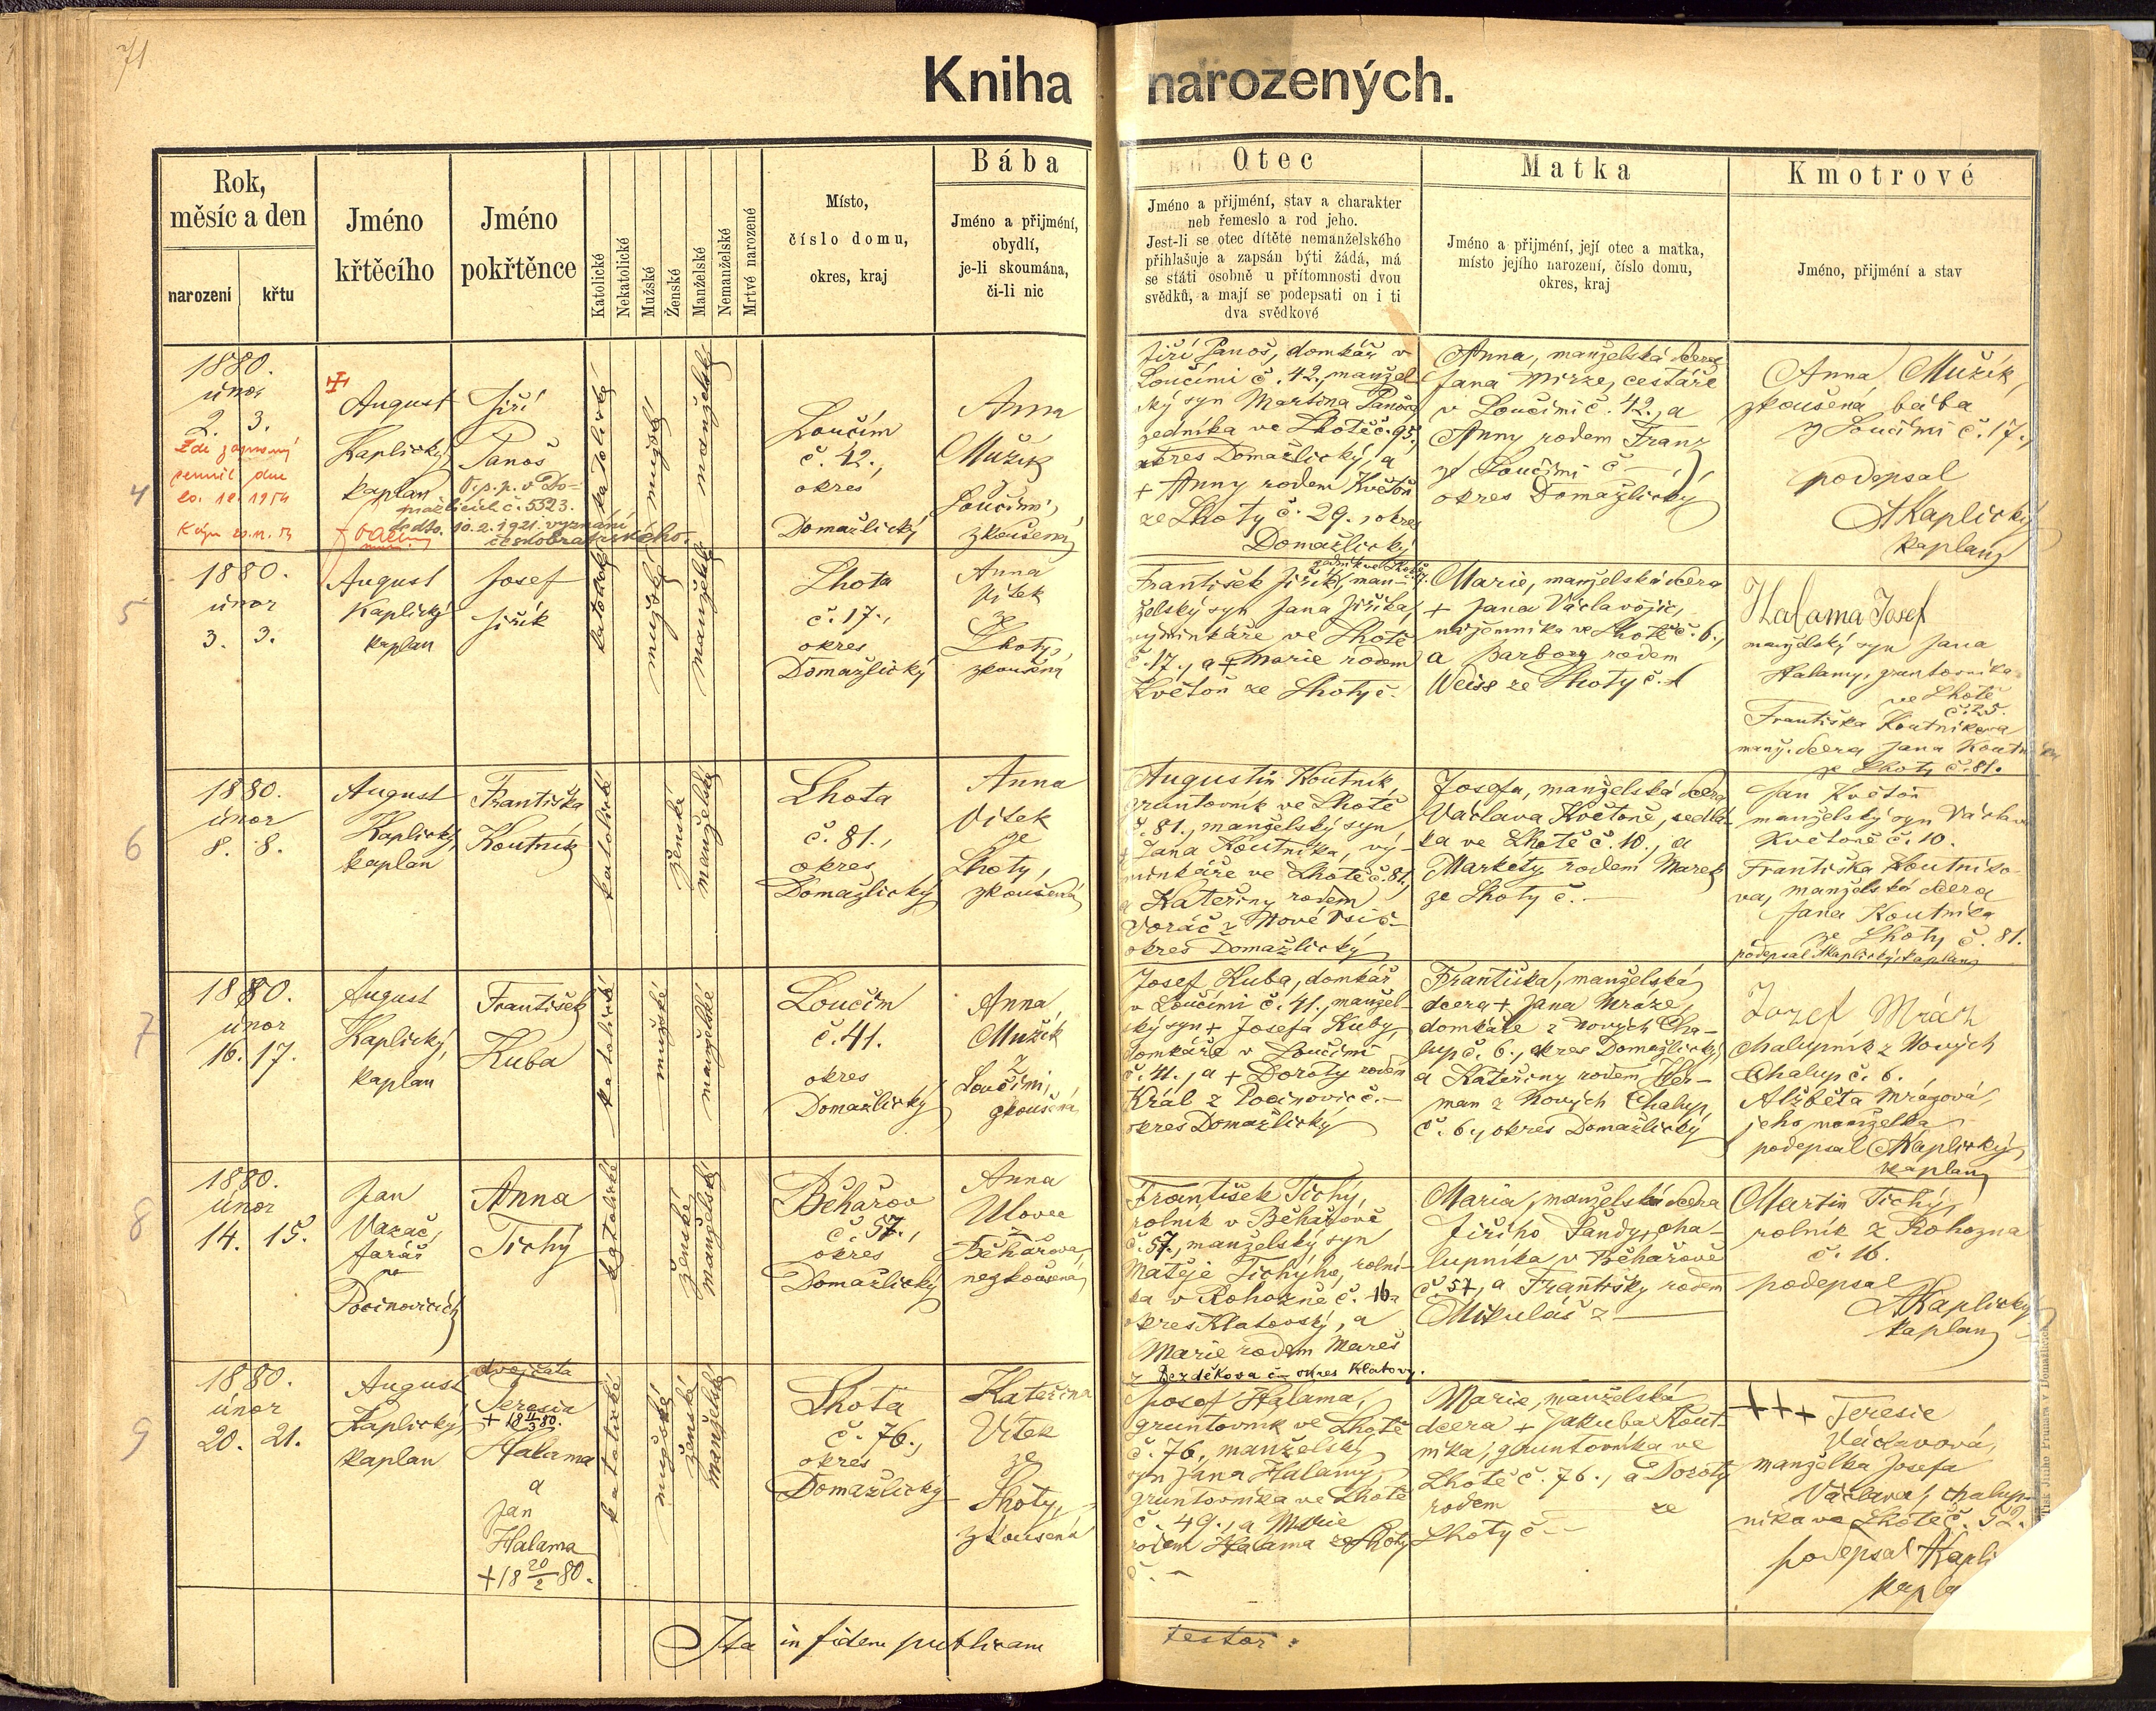 71
Kniha narozených.
Rok,
měsíc a den
narození
křtu
Jméno
křtěcího
Jméno
pokřtěnce
Katolické
Nekatolické
Mužské
Ženské
Manželské
Nemanželské
Mrtvé narozené
Místo,
číslo domu,
okres, kraj
Bába
Jméno a přijmění,
obydlí,
je-li skoumána,
či-li nic
Otec
Jméno a přijmění, stav a charakter
neb řemeslo a rod jeho.
Jest-li se otec dítěte nemanželského
přihlašuje a zapsán býti žádá, má
se státi osobně u přítomnosti dvou
svědků, a mají se podepsati on i ti
dva svědkové
Matka
Jméno a přijmění, její otec a matka,
místo jejího narození, číslo domu,
okres, kraj
Kmotrové
Jméno, přijmění a stav
4
1880.
únor
2. 3.
Zde zapsaný
zemřel dne
20. 12. 1954
August
Kaplický,
kaplan
Jiří
Panoš
č. 5523.
10. 2. 1921. vyznání
českobratrského.
katolické
mužské
manželské
Loučim
č. 42.,
okres
Domažlický
Anna
Mužík
Loučimi,
zkoušená
Jiří Panoš, domkář v
Loučimi č. 42., manžel
ský syn Martina Panoše
zedníka ve Lhotě č. 95.,
okres Domažlický, a
+ Anny rodem Květoň
ze Lhoty č. 29., okres
Domažlický
Anna, manželská dcera
Jana Mirze, cestáře
v Loučimi č. 42., a
Anny rodem Franz
z Loučimi č —,
okres Domažlický
Anna Mužík,
zkoušená bába
z Loučimi č. 17.,
podepsal
AKaplický
kaplan
5
1880.
únor
3. 3.
August
Kaplický
kaplan
Josef
Jiřík
katolické
mužské
manželské
Lhota
č. 17.,
okres
Domažlický
Anna
Vítek
ze
Lhoty,
zkoušená
František Jiřík, man-
želský syn Jana Jiříka,
výminkáře ve Lhotě
č. 17., a + Marie rodem
Květoň ze Lhoty č.
Marie, manželská dcera
+ Jana Václavojic,
nájemníka ve Lhotě č. 6.,
a Barbory rodem
Weiss ze Lhoty č. 1
Halama Josef
manželský syn Jana
Halamy, gruntovníka
ve Lhotě
č. 25.
Františka Koutníkova
manž. dcera Jana
ze Lhoty č. 81.
6
1880.
únor
8. 8.
August
Kaplický,
kaplan
Františka
Koutník
katolické
ženské
manželské
Lhota
č. 81.,
okres
Domažlický
Anna
Vítek
ze
Lhoty,
zkoušená
Augustin Koutník,
gruntovník ve Lhotě
č. 81., manželský syn
+ Jana Koutníka, vý-
minkáře ve Lhotě č. 81.,
a Kateřiny rodem
Voráč z Nové Vsi č. —
okres Domažlický
Josefa, manželská dcera
Václava Květoně, sedlá-
ka ve Lhotě č. 10., a
Markety rodem Marek
ze Lhoty č. —
Jan Květoň
manželský syn Václava
Květoně č. 10.
Františka Koutníko-
va, manželská dcera
Jana Koutníka
ze Lhoty č. 81.
podepsal AKaplický kaplan
7
1880.
únor
16. 17.
August
Kaplický,
kaplan
František
Kuba
katolické
mužské
manželské
Loučim
č. 41.
okres
Domažlický
Anna
Mužík
z
Loučimi,
zkoušená
Josef Kuba, domkář
v Loučimi č. 41., manžel-
ský syn + Josefa Kuby,
domkáře v Loučimi
č. 41., a + Doroty rodem
Král z Pocinovic č. —
okres Domažlický
Františka, manželská
dcera + Jana Mráze,
domkáře z Nových Cha-
lup č. 6., okres Domažlický
a Kateřiny rodem Her-
man z Nových Chalup,
č. 6., okres Domažlický
Jozef Mráz
chalupník z Nových
Chalup č. 6.
Alžběta Mrázová,
jeho manželka
podepsal AKaplický,
kaplan
8
1880.
únor
14. 15.
Jan
Vazač,
farář
Pocinovicích
Anna
Tichý
katolické
ženské
manželské
Běhařov
č. 57.,
okres
Domažlický
Anna
Ulovec
z
Běhařova,
nezkoušená
František Tichý,
rolník v Běhařově
č. 57., manželský syn
Matěje Tichýho, rolní-
ka v Rohozně č. 16
okres Klatovský, a
Marie rodem Mareš
z Dezděkova č — okres Klatovy.
Maria, manželská dcera
Jiřího Šandy, cha-
lupníka v Běhařově
č. 57, a Františky rodem
Mikuláš z —
Martin Tichý,
rolník z Rohozna
č. 16.
podepsal
AKaplický
kaplan
9
1880.
únor
20. 21.
August
Kaplický,
kaplan
dvojčata
Teresia
Halama
a
Jan
Halama
+ 18 20/2 80.
katolické
mužské
ženské
manželské
Lhota
č. 76.,
okres
Domažlický
Kateřina
Vítek
ze
Lhoty,
zkoušená
Josef Halama,
gruntovník ve Lhotě
č. 76, manželský
syn Jana Halamy,
gruntovníka ve Lhotě
č. 49., a Marie
rodem Halama ze Lhoty
č. —
Marie, manželská
dcera + Jakuba Kout-
níka, gruntovníka ve
Lhotě č. 76., a Doroty
rodem ze
Lhoty č —
+++ Teresie
Václavová,
manželka Josefa
Václava, chalup-
níka ve Lhotě č. 52.
podepsal AKapli
kapla
Ita in fidem publicam
testor: